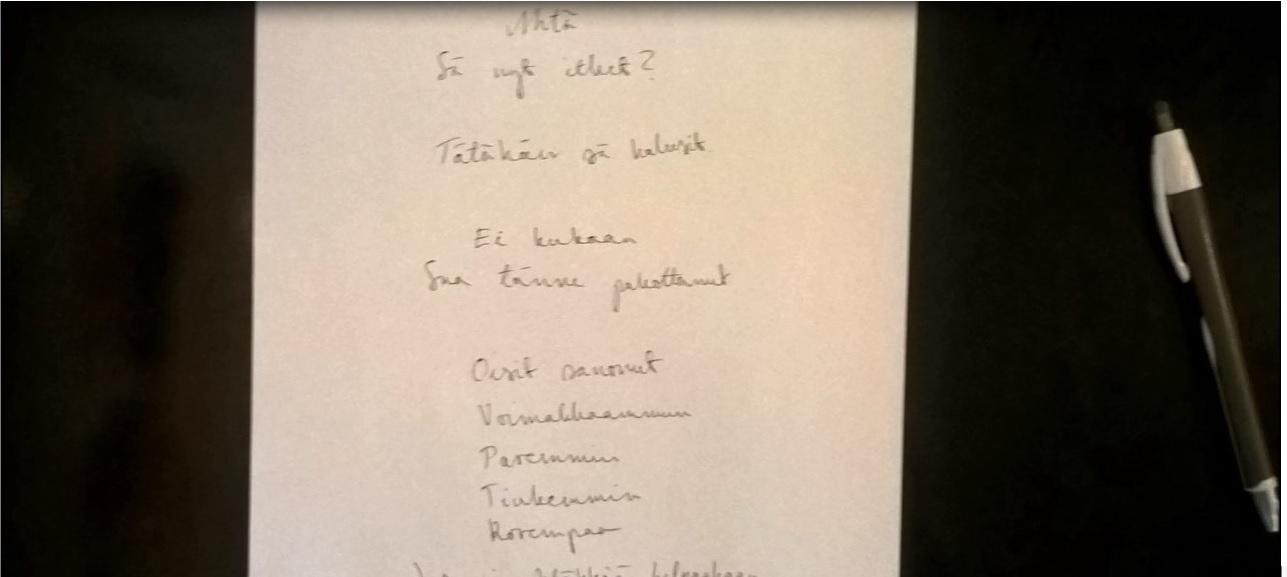 Mitä
Sä nyt itket?
Tätähän sä halusit.
Ei kukaan
Sua tänne pakottanut
Oisit sanonut
Voimakkaammin
Paremmin
Tiukemmin
Kovempaa